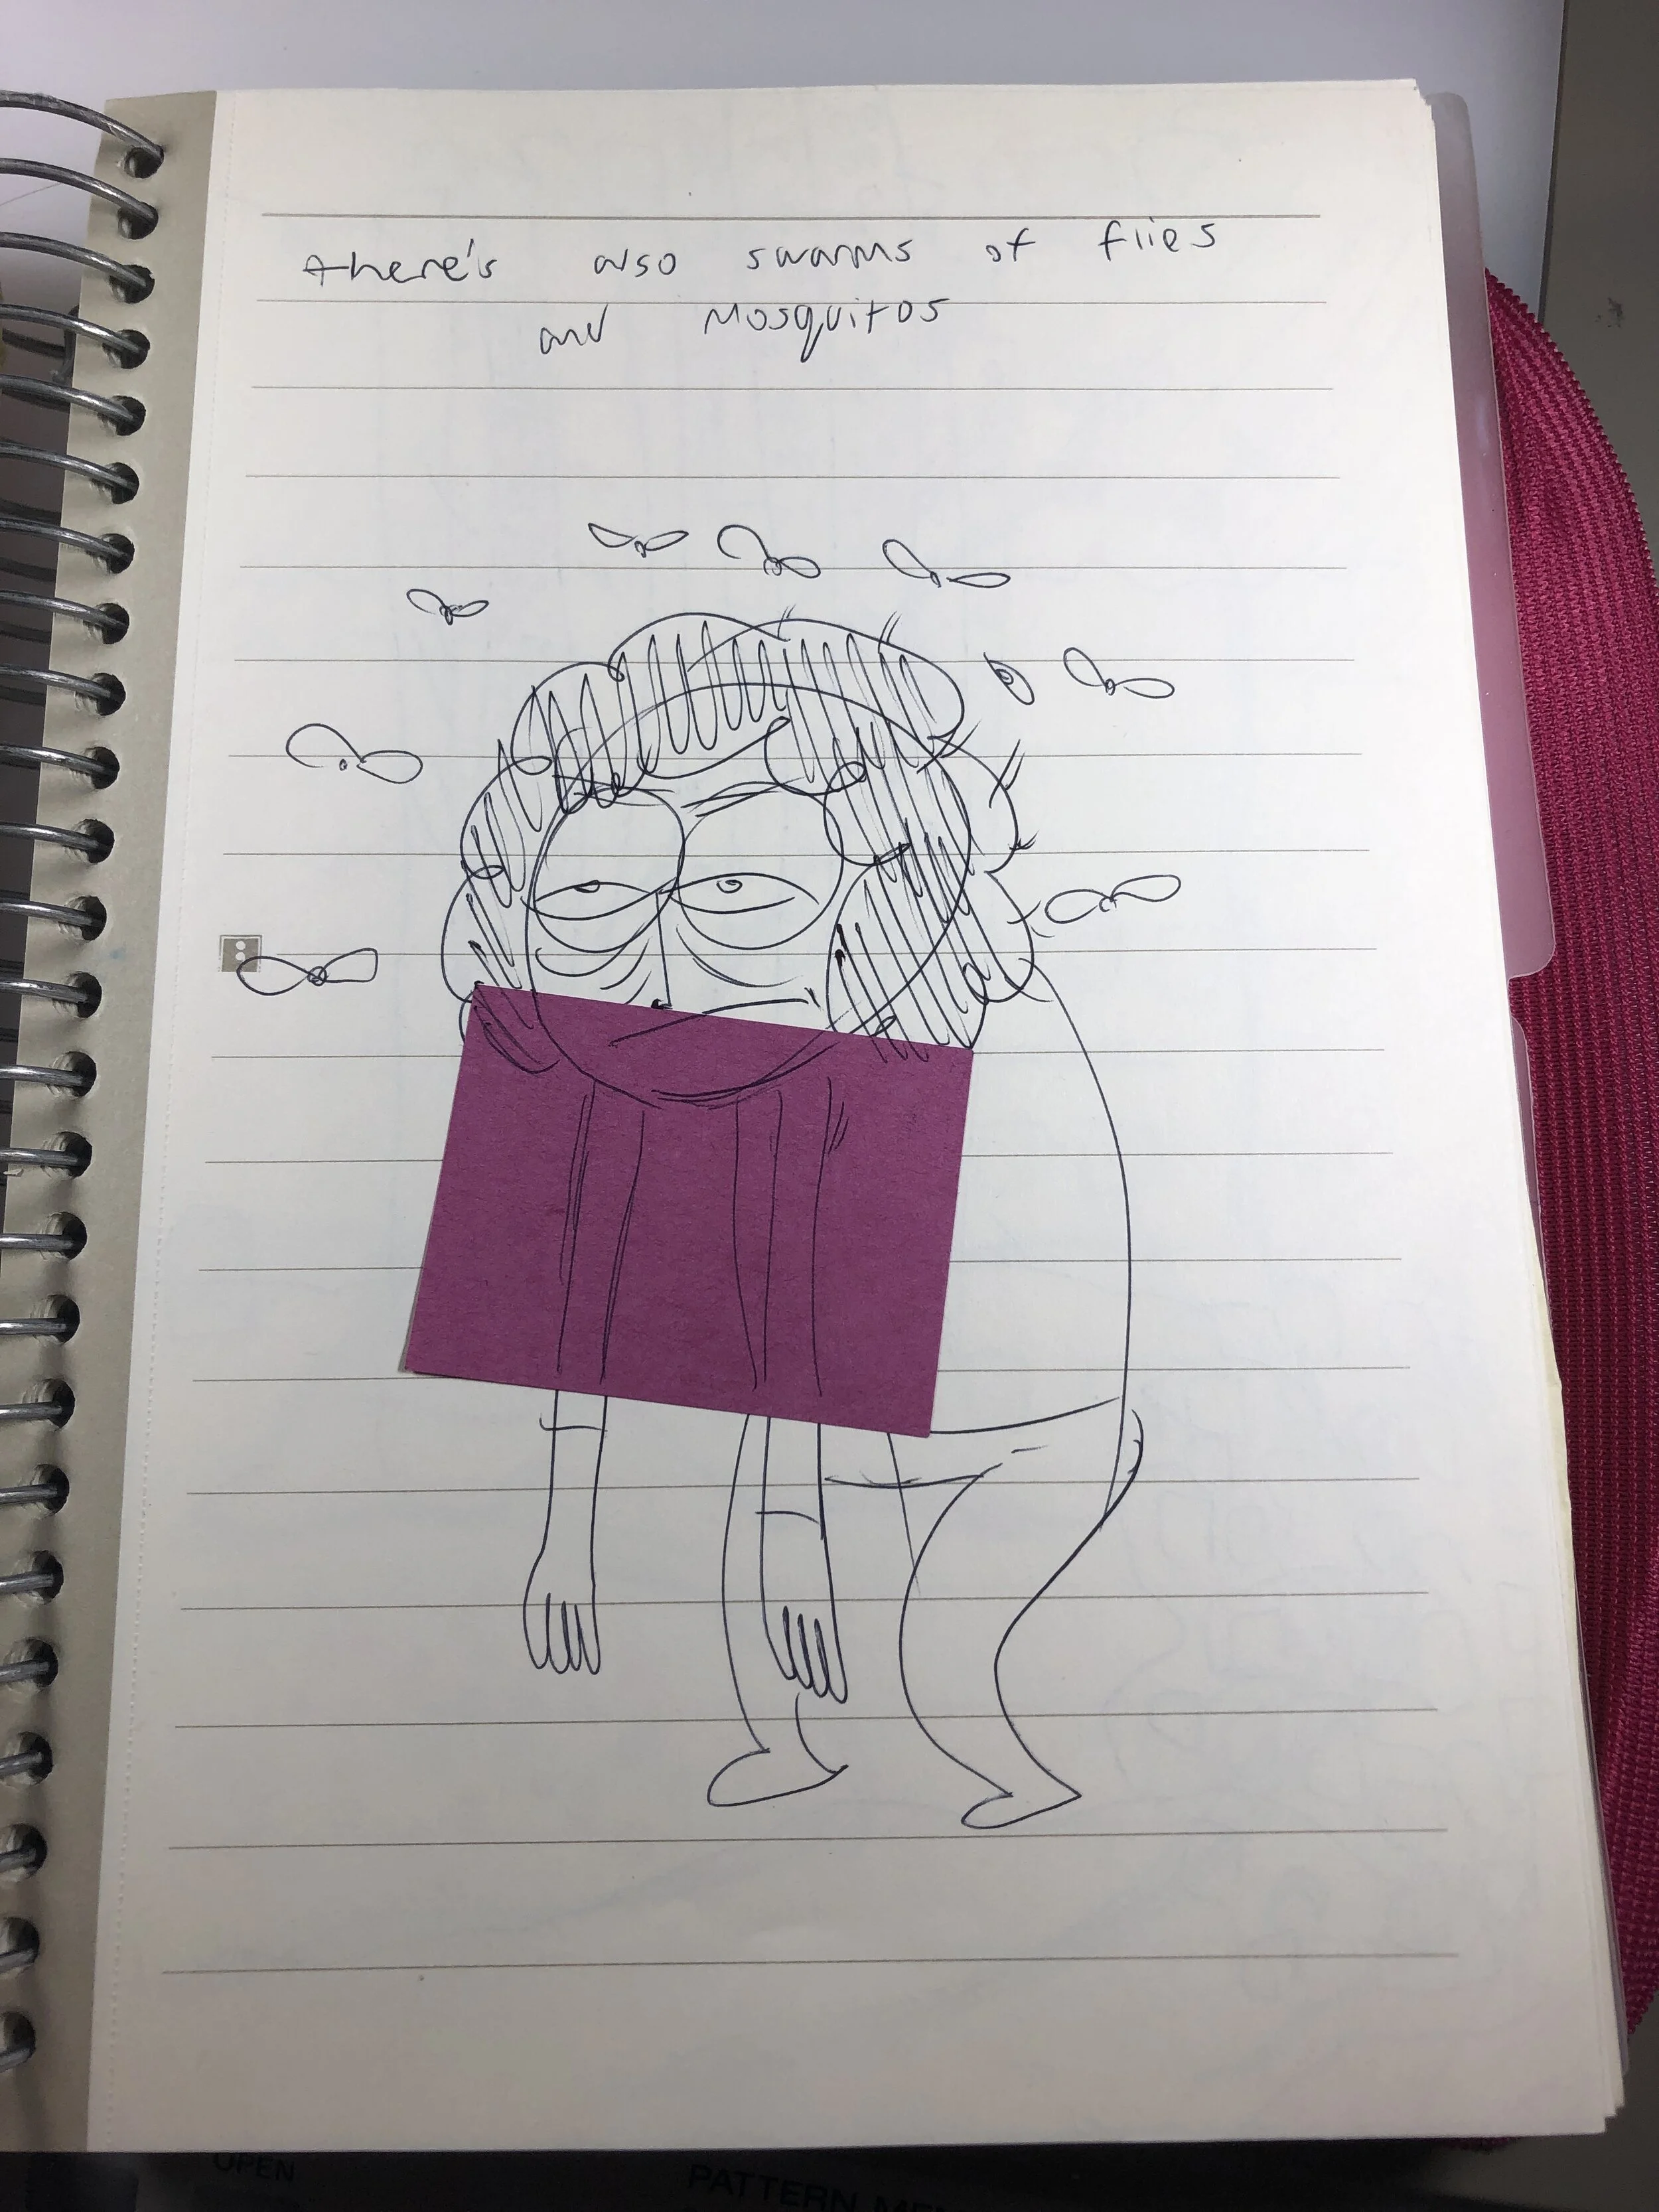 there's also swarms of flies
and mosquitos
OPEN